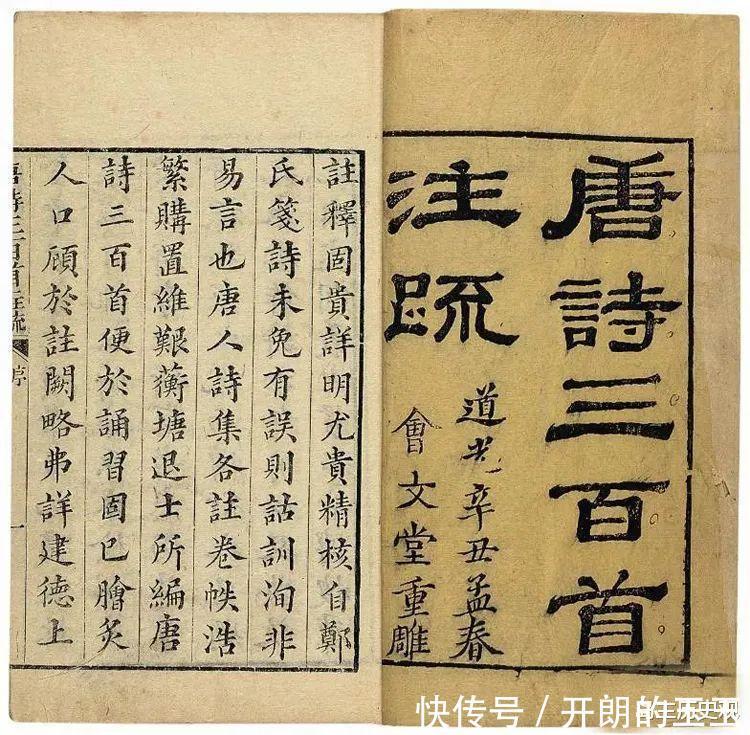 唐詩三百首
注疏
道光辛丑孟春
會文堂重雕
註釋固貴詳明尤貴精核自鄭
氏箋詩未免有誤則詁訓洵非
易言也唐人詩集各註卷帙浩
繁購置維艱蘅塘退士所編唐
詩三百首便於誦習固已膾炙
人口顧於註闕略弗詳建德上
唐詩三百首註疏 序 一
快传号／开朗的王王